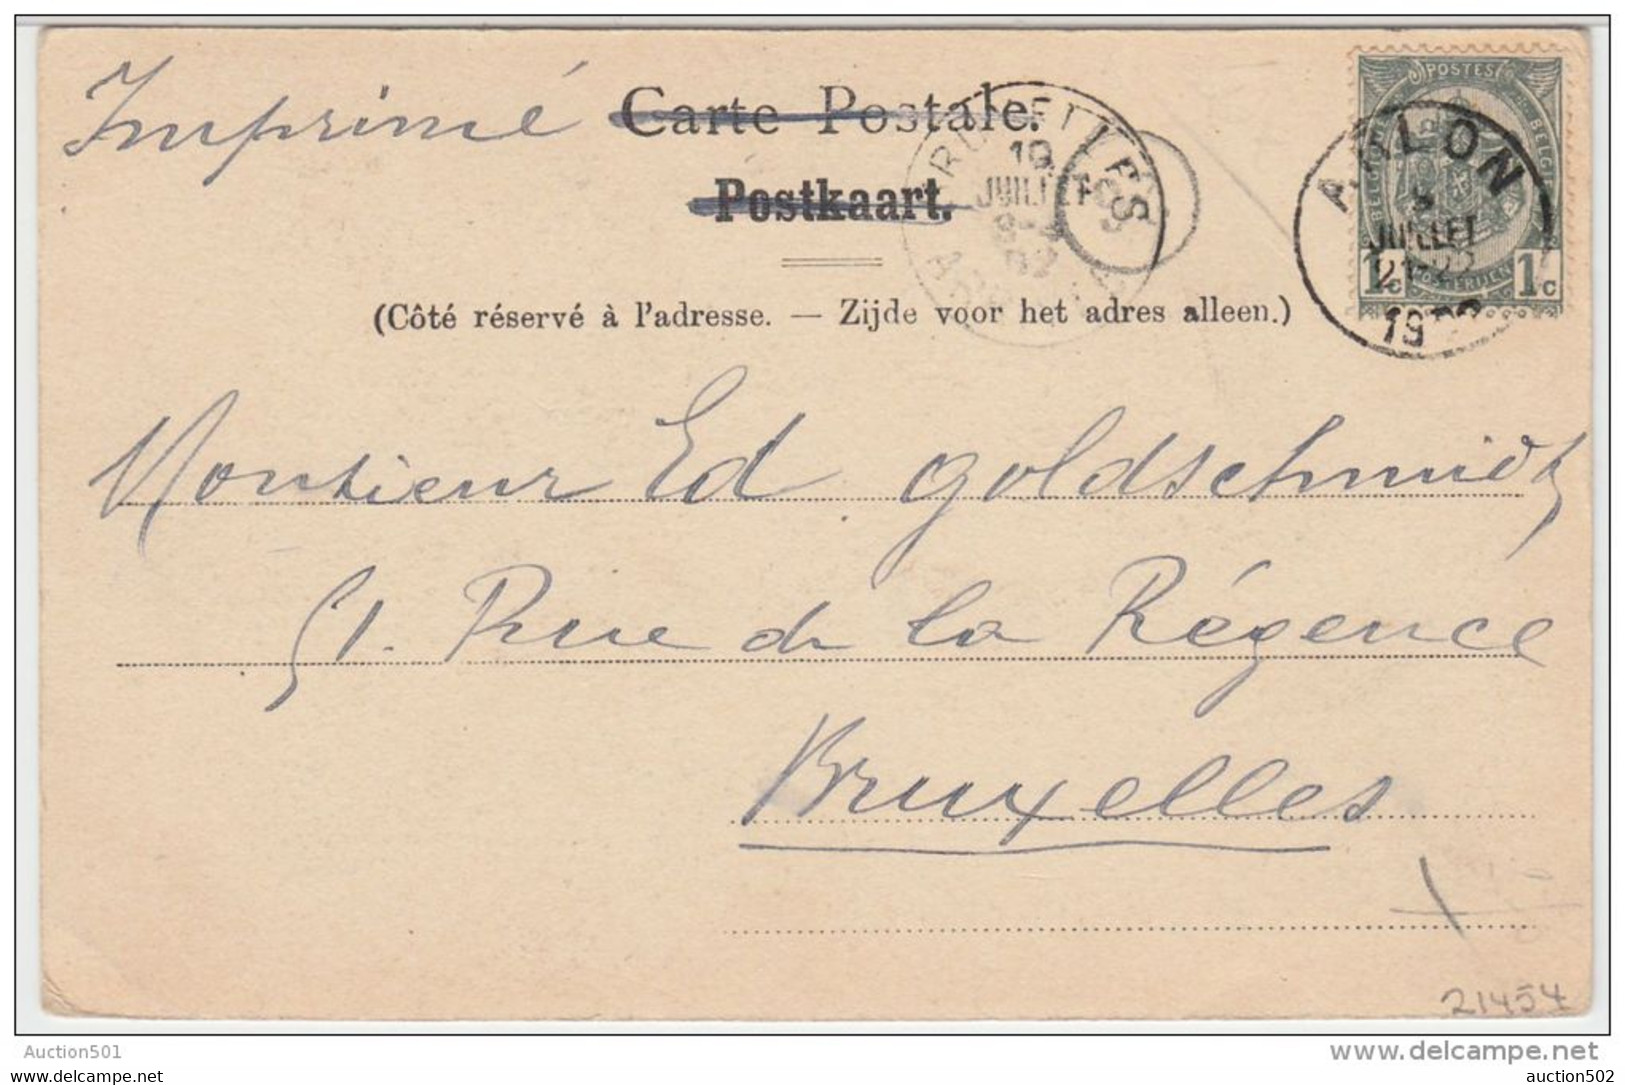 Imprimé
Carte Postale.
Postkaart.
(Côté réservé à l'adresse. — Zijde voor het adres alleen.)
BRUXELLES
19
JUILLET
POSTES
BELGIQUE
BELGIE
1c
1c
ARLON
JUILLET
Monsieur Ed goldschmidt
51. Rue de la Régence
Bruxelles
21454
Auction501
www.delcampe.net
auction502